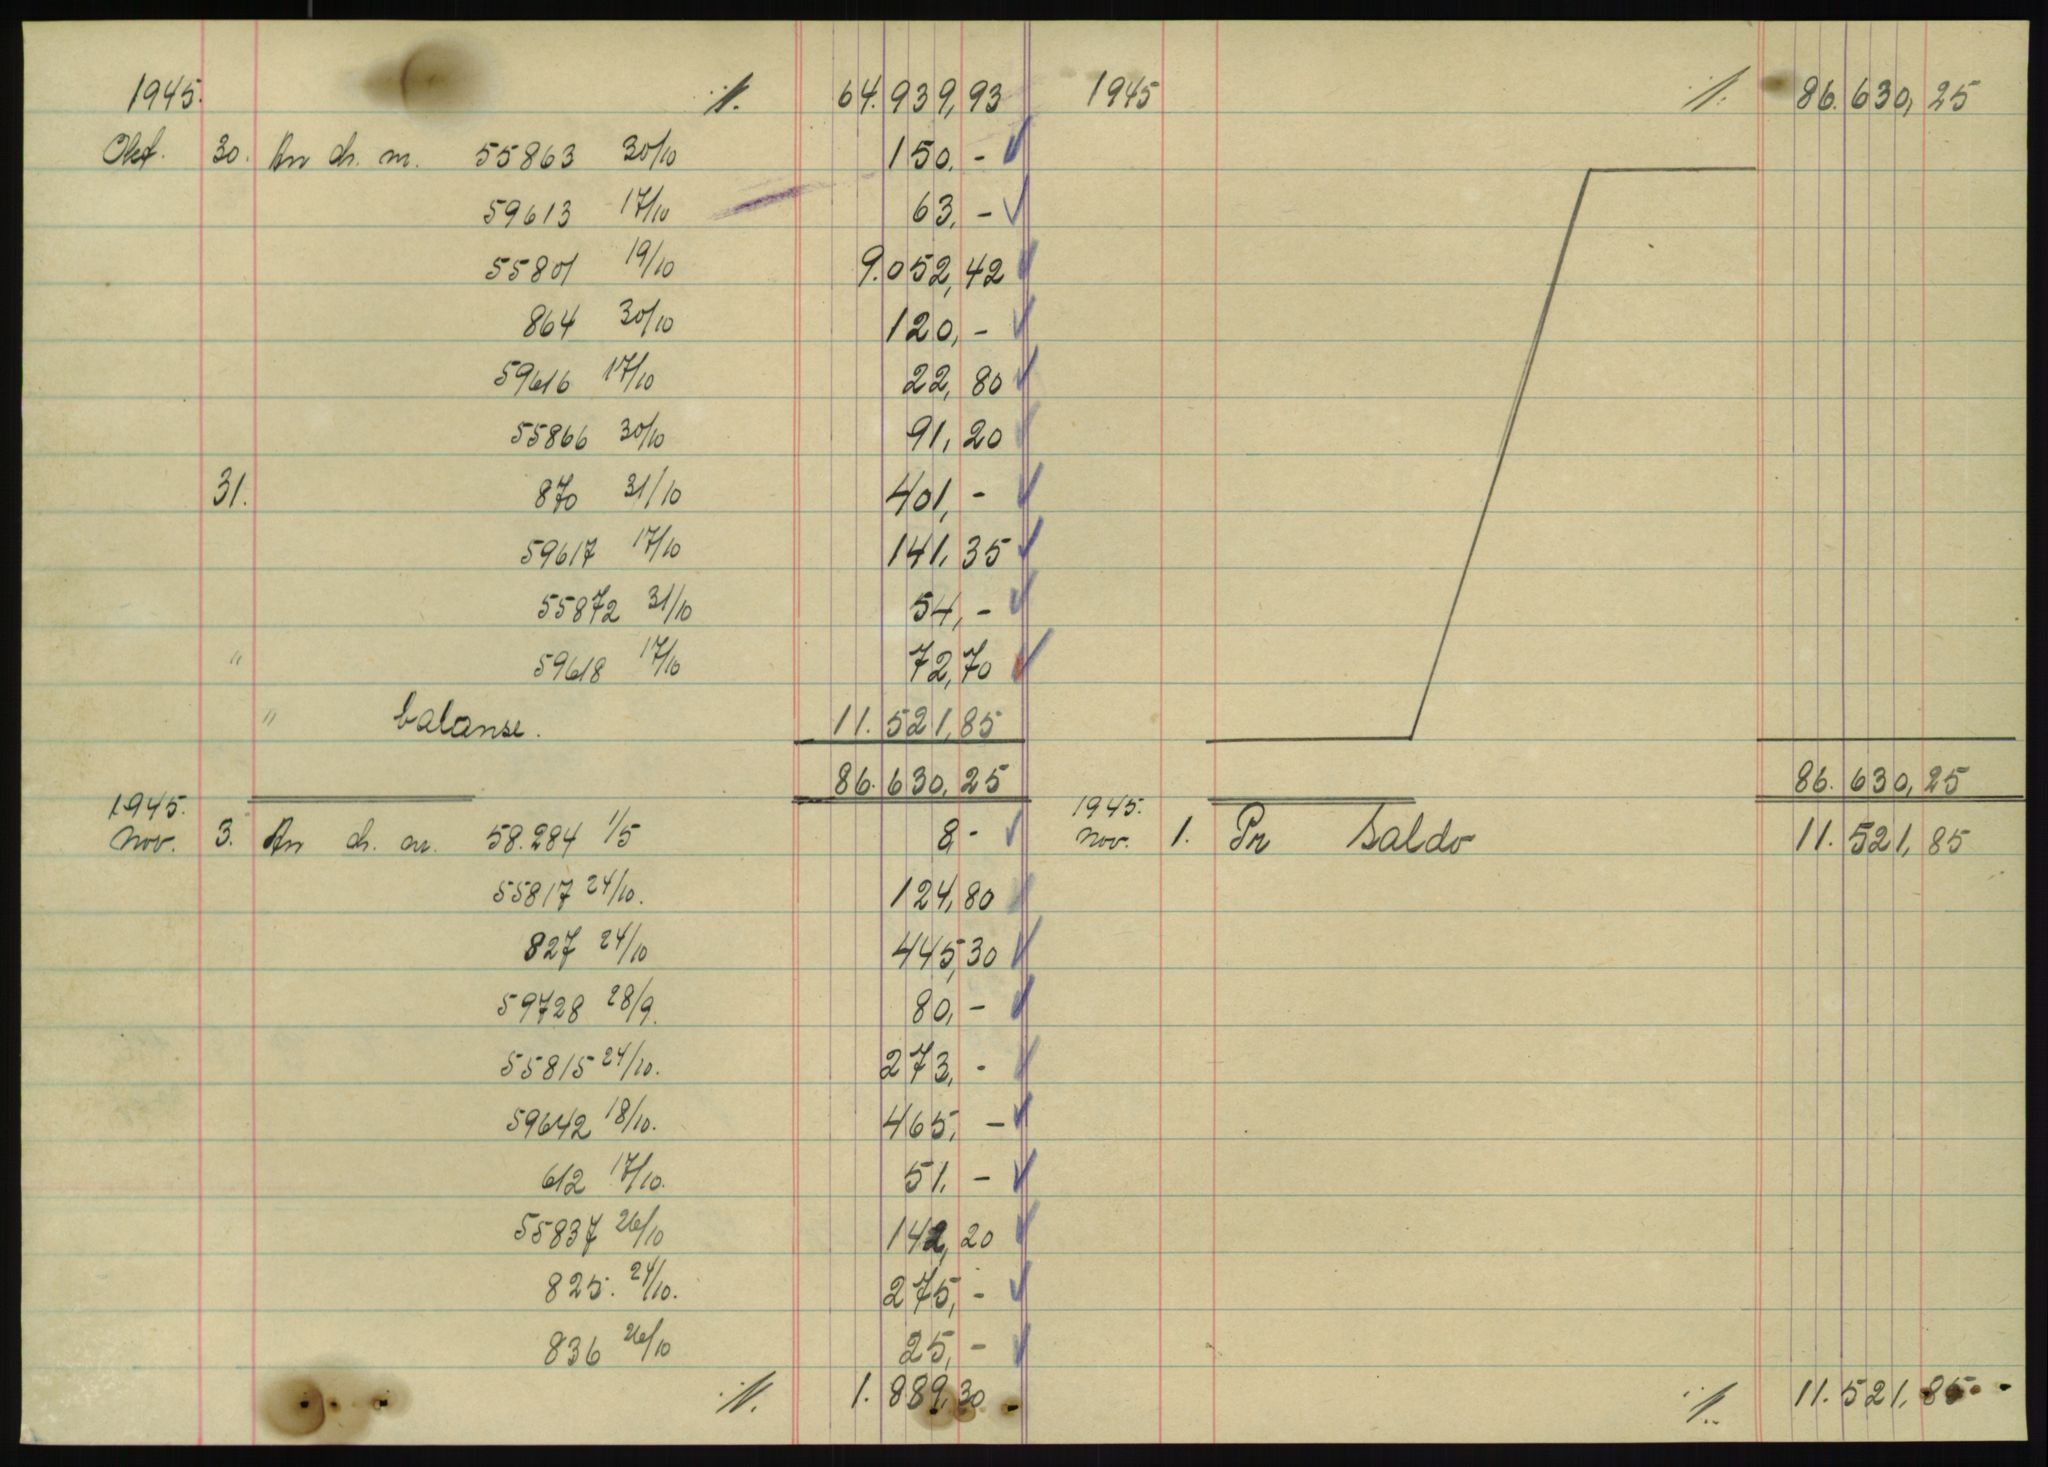 1945. ·/. 64.939,93
Okt. 30. An ch. nr. 55863 30/10 150,-
59613 17/10 63,-
55801 19/10 9.052,42
864 30/10 120,-
59616 17/10 22,80
55866 30/10 91,20
31. 870 31/10 401,-
59617 17/10 141,35
55872 31/10 54,-
" 59618 17/10 72,70
" balanse. 11.521,85
86.630,25
1945.
Nov. 3. An ch. nr. 58.284 1/5 8,-
55817 24/10. 124,80
827 24/10 445,30
59728 28/9. 80,-
55815 24/10. 273,-
59642 18/10. 465,-
612 17/10. 51,-
55837 26/10 142,20
825. 24/10. 275,-
836 26/10 25,-
·/. 1.889,30
1945 ·/. 86.630,25
86.630,25
1945.
Nov. 1. Pr Saldo 11.521,85
·/. 11.521,85